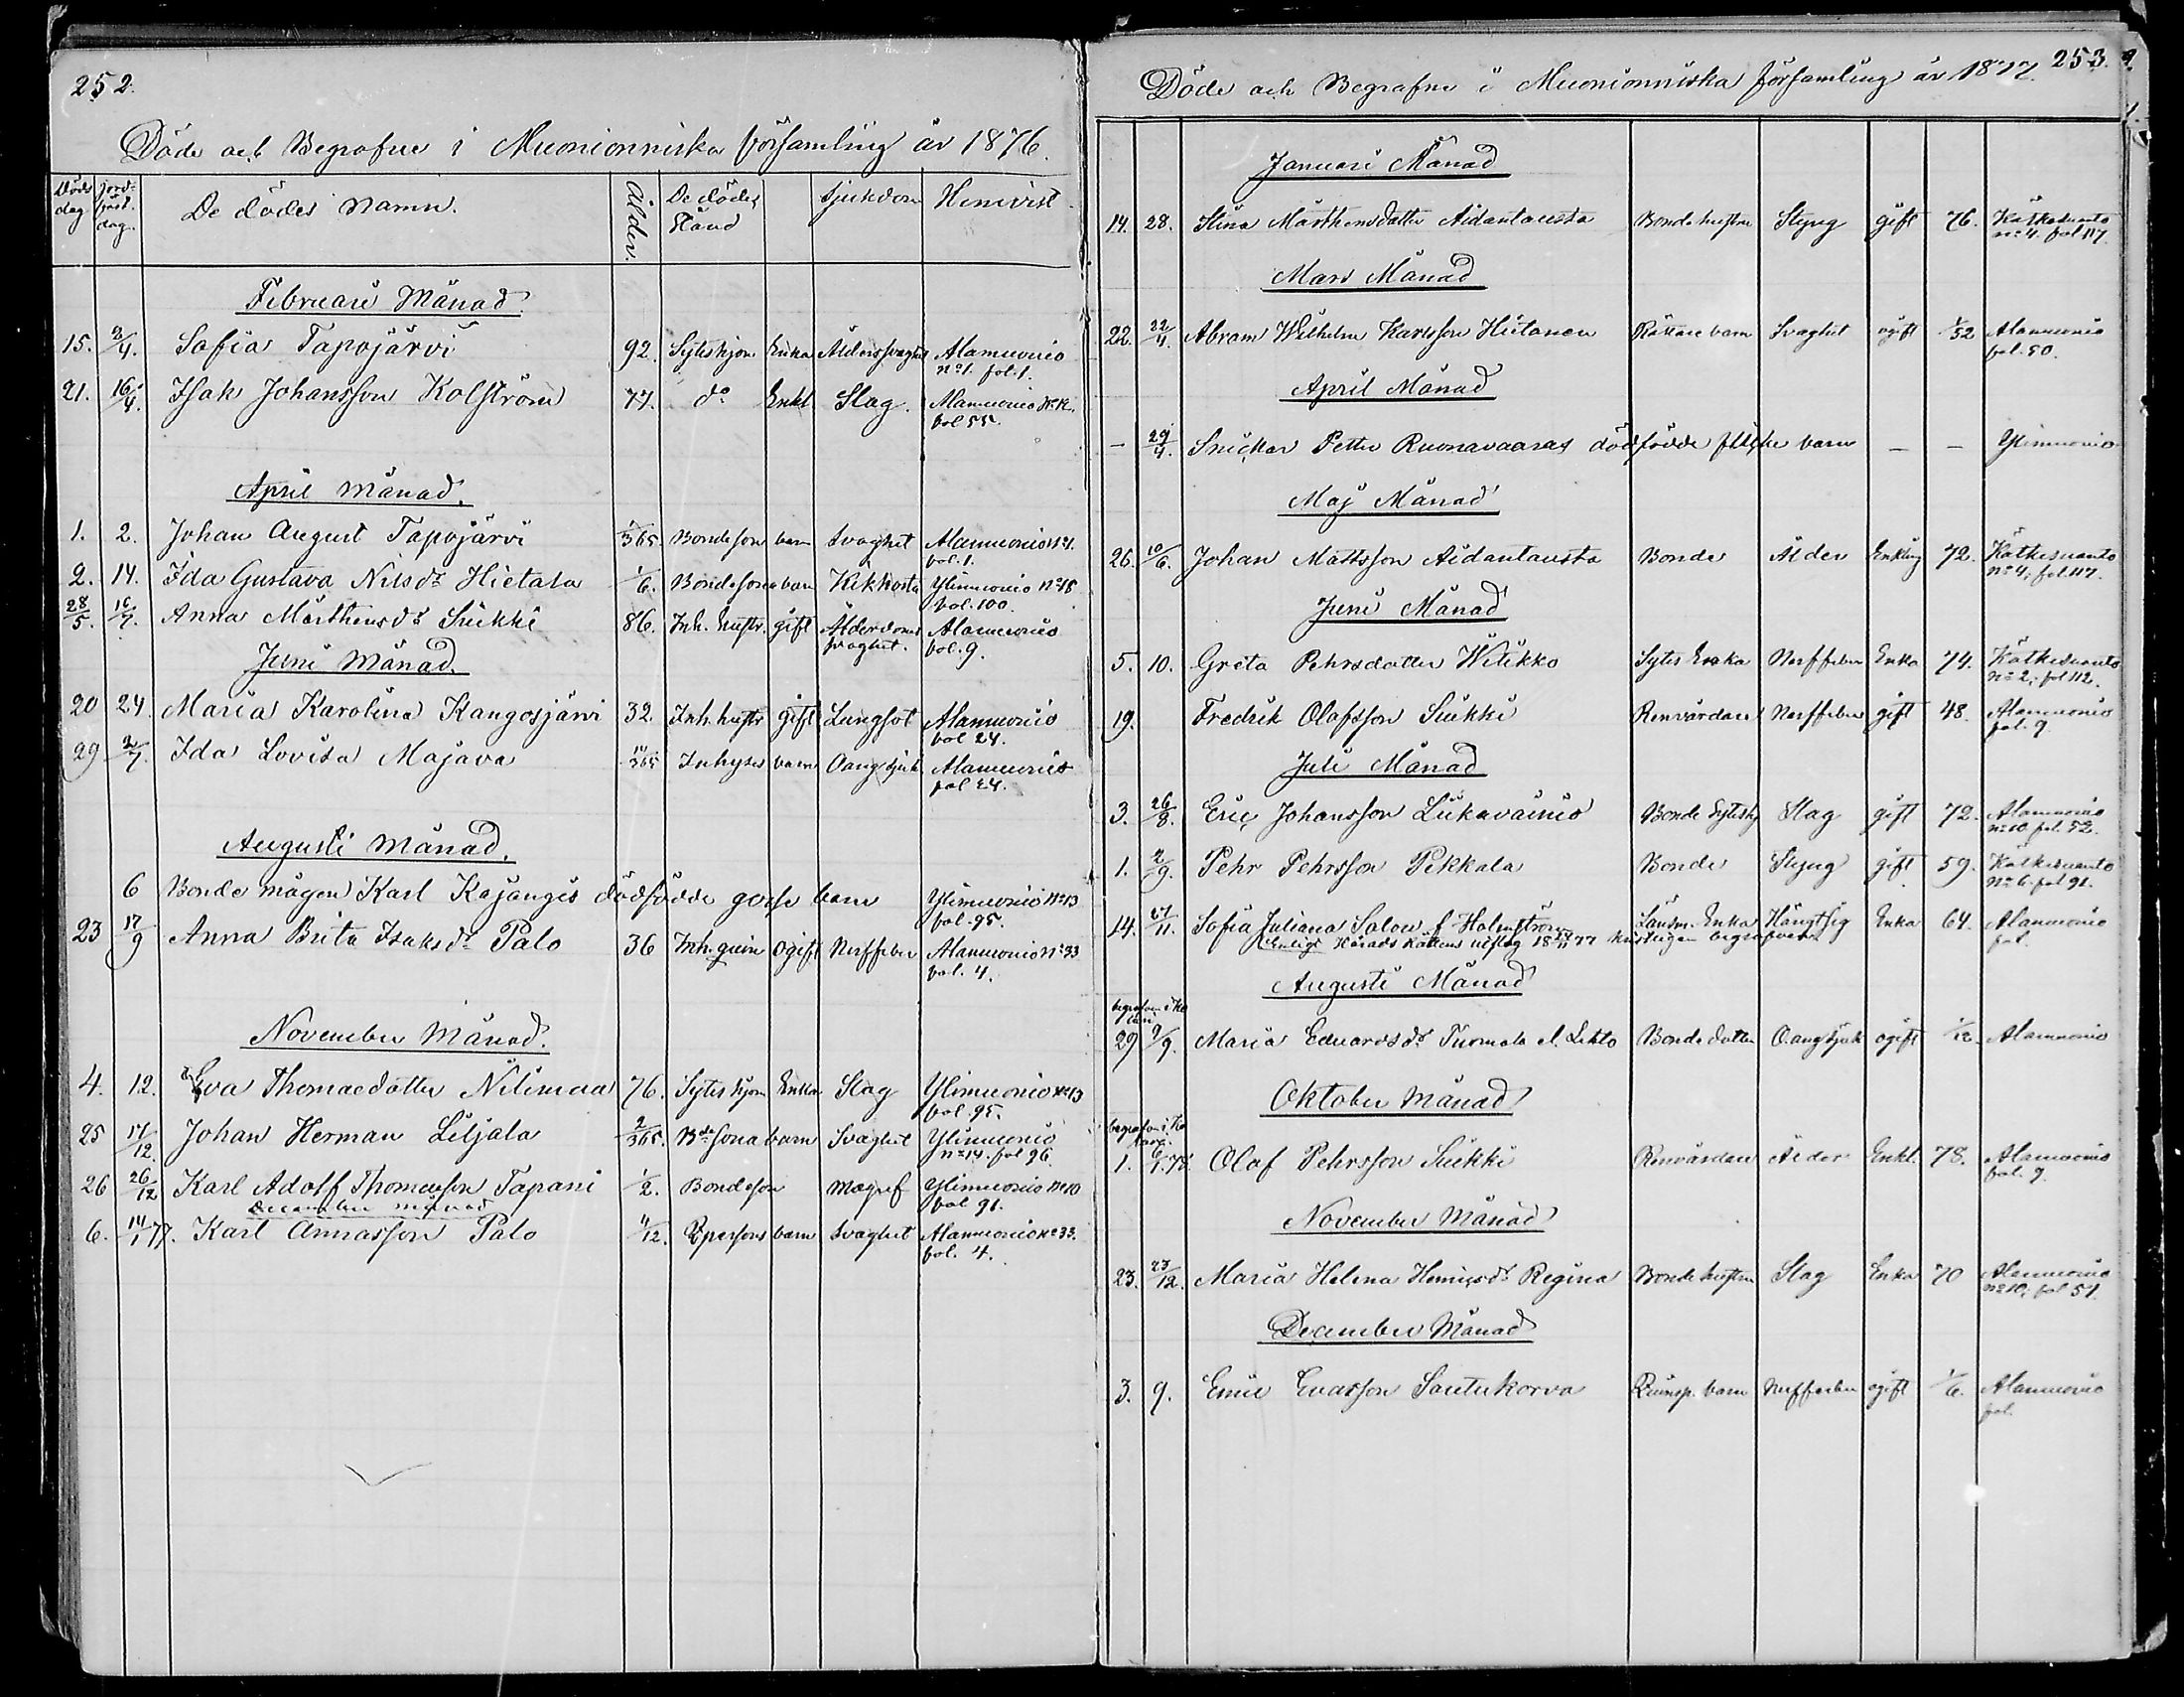 252.
Döde och Begrafne i Muonionniska församling år 1876.
Döds dag
jord-fäst. dag.
De dödes Namn.
Ålder.
De dödes Stånd
Sjukdom
Hemvist
Februari Månad.
15. 2/4. Sofia Tapojärvi 92. Sytnihjon Enka Ålderssvaghet Alamuonio
n:o 1. fol. 1.
21. 16/4. Isak Johansson Kolström 77. d:o Enkl. Slag. Alamuonio
fol 55.
April Månad.
1. 2. Johan August Tapojärvi 1/365. Bondeson barn Svaghet Alamuonio N:o 1.
fol. 1.
2. 14. Ida Gustava Nilsd:r Hietala 1/6. Bondesona barn Kikhosta Ylimuonio N:o 18
fol. 100.
28/5. 16/7. Anna Mårthensd:r Siikki 86. Inh. hustr. gift Ålderdoms Alamuonio
svaghet. fol. 9.
Juni Månad.
20 24. Maria Karolina Kangosjärvi 32. Inh. hustr. gift Lungsot Alamuonio
fol 24.
29 2/7. Ida Lovisa Majava 11/365 Inhyses barn Oangsjuk Alamuonio
fol 24.
Augusti Månad.
6 Bonde mågen Karl Kajangis dödfödde gosse barn Ylimuonio N:o 13
fol. 95.
23 17/9 Anna Brita Isaksd:r Palo 36 Inh. qvin ogift Nerffeber Alamuonio N:o 33
fol. 4.
November Månad.
4. 12. Eva Thomaedotter Nilimaa 76. Sytis hjon Enka Slag Ylimuonio N:o 13
fol. 95.
25 17/12. Johan Herman Liljala 2/365. B:de sona barn Svaghet Ylimuonio
N:o 14. fol 96.
26 26/12 Karl Adolf Thomasson Tapani 1/2. Bondeson Magref Ylimuonio N:o 10
fol 91.
December månad
6. 14/1 77. Karl Annasson Palo 11/12. Qpersons barn Svaghet Alamuonio N:o 33.
fol. 4.
253.
Döde och Begrafne i Muonionniska församling år 1877.
Januari Månad
14. 28. Stina Mårthensdotter Aidantausta Bonde hustru Styng gift 76. Kätkesuanto
N:o 4. fol 117.
Mars Månad
22. 22/4. Abram Wilhelm Karlsson Hietanen Rättare barn Svaghet ogift 1/52 Alamuonio
fol. 50.
April Månad
– 29/4. Snickar Petter Ruonavaaras dödfödde flicke barn – – Ylimuonio
Maj Månad
26. 10/6. Johan Mattsson Aidantausta Bonde Ålder Enkling 72. Kätkesuanto
N:o 4, fol 117.
Juni Månad
5. 10. Greta Pehrsdotter Wilikko Sytes Enka Nerffeber Enka 74. Kätkesuanto
N:o 2, fol 112.
19. Fredrik Olofsson Siikki Renvårdare Nerffeber gift 48. Alamuonio
fol. 9.
Juli Månad
3. 26/8. Eric Johansson Liikavainio Bonde Sytishj Slag gift 72. Alamuonio
N:o 10 fol. 52.
1. 2/9. Pehr Pehrsson Pekkala Bonde Styng gift 59. Kätkesuanto
N:o 6 fol 91.
14. Sofia Juliana Salon f Holmström Länsm. Enka Hängt sig Enka 64. Alamuonio
Enligt Härads Rättens utslag begrafven fol.
Augusti Månad
begrafven i Ko
lari
29 9/9. Maria Eduardsd:r Tuomola el. Lehto Bonde dotter Oangsjuk ogift 1/12. Alamuonio
Oktober Månad
begrafven i Ko
lari
1. 6/1. 78. Olof Pehrsson Siikki Renvårdare Ålder Enkl. 78. Alamuonio
fol. 9.
November Månad
23. 23/12. Maria Helena Henricsd:r Regina Bonde hustru Slag Enka 70 Alamuonio
N:o 10, fol 51.
December Månad
3. 9. Emil Evasson Sautukorva Qvinsp. barn Nerffeber ogift 1/6. Alamuonio
fol.